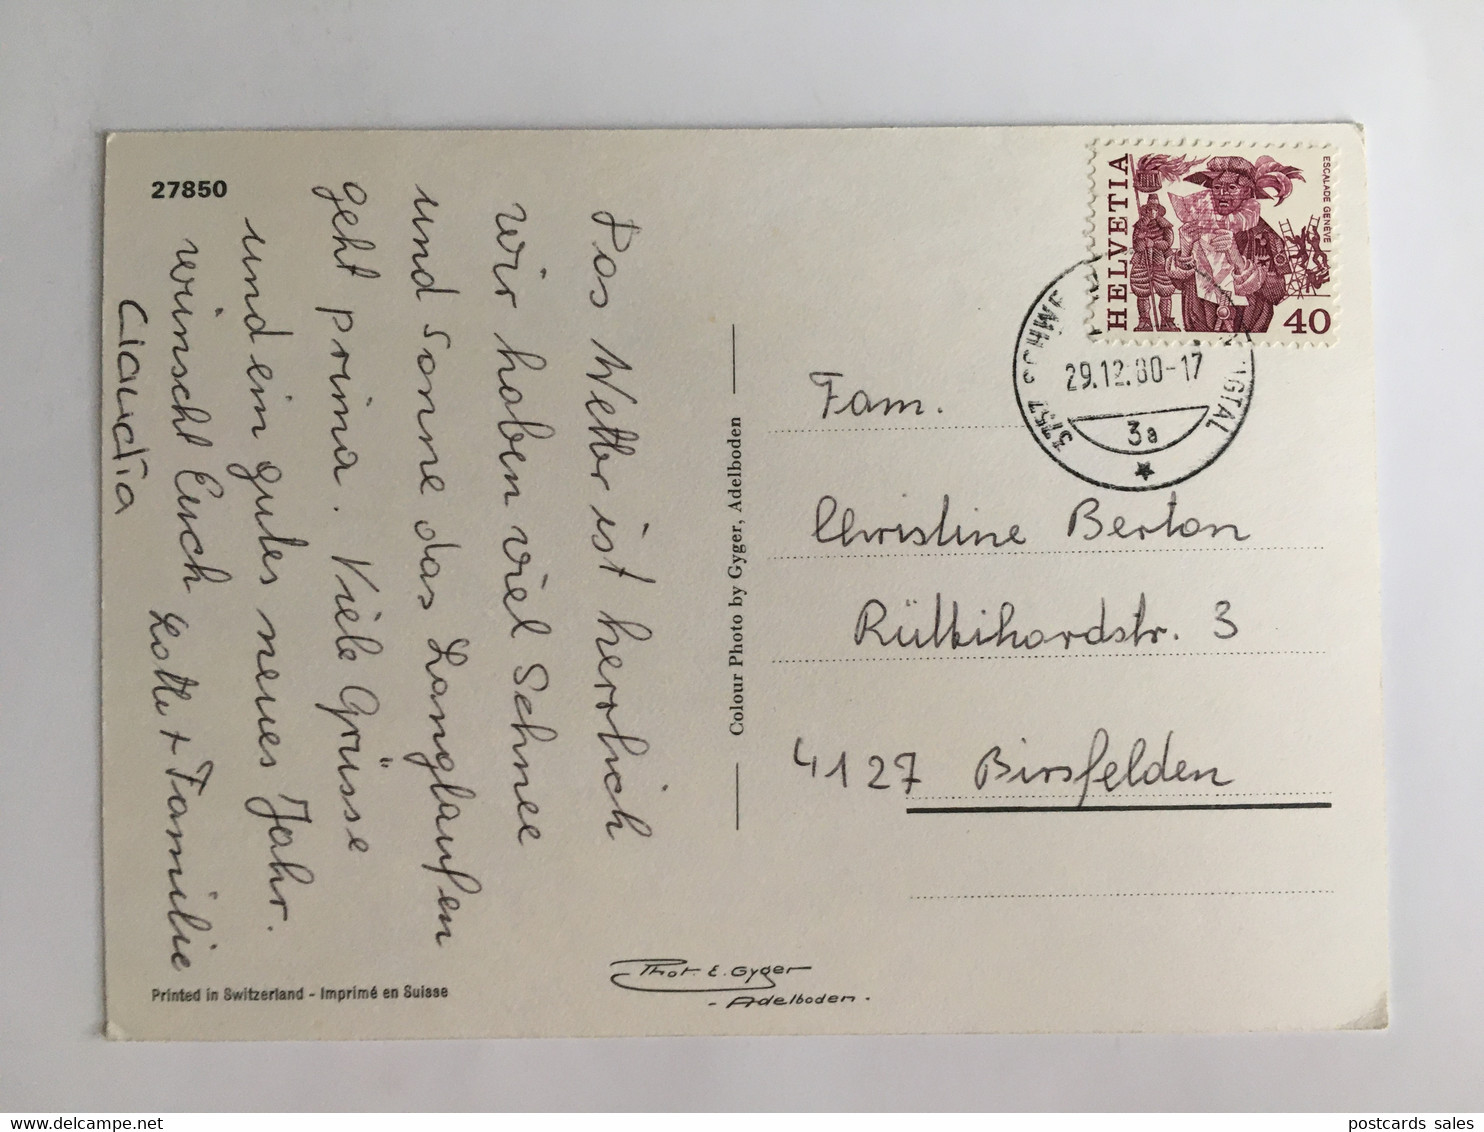 27850
Das Wetter ist herrlich
wir haben viel Schnee
und Sonne das Langlaufen
geht prima. Viele Grüsse
und ein gutes neues Jahr.
wünscht Euch Lotti + Familie
Claudia
Printed in Switzerland - Imprimé en Suisse
Colour Photo by Gyger, Adelboden
Phot. E. Gyger
- Adelboden.
HELVETIA
ESCALADE GENÈVE
40
3757
29.12.80-17
3a
Fam.
Christine Berton
3
4127 Birsfelden
postcards sales